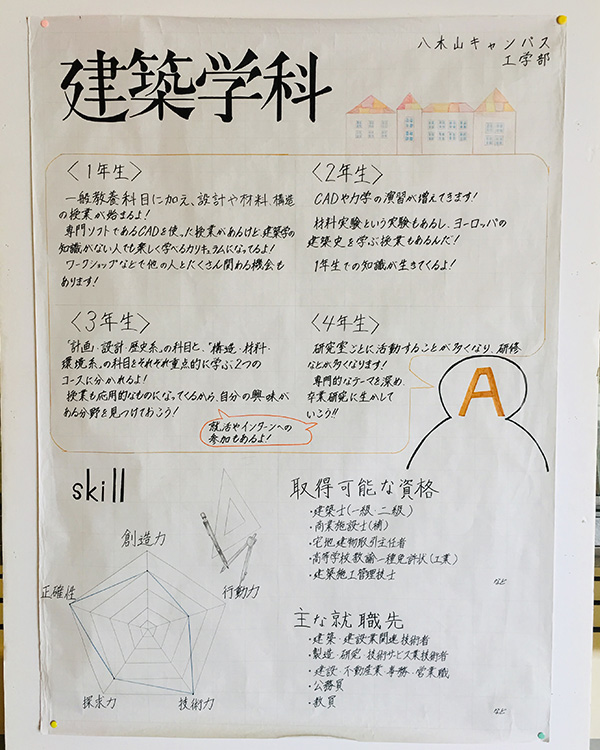 八木山キャンパス
工学部
建築学科
〈1年生〉
一般教養科目に加え、設計や材料、構造
の授業が始まるよ!
専門ソフトであるCADを使った授業があるけど、建築学の
知識がない人でも楽しく学べるカリキュラムになってるよ!
ワークショップなどで他の人とたくさん関わる機会も
あります!
〈2年生〉
CADや力学の演習が増えてきます!
材料実験という実験もあるし、ヨーロッパの
建築史を学ぶ授業もあるんだ!
1年生での知識が生きてくるよ!
〈3年生〉
「計画・設計・歴史系」の科目と、「構造・材料・
環境系」の科目をそれぞれ重点的に学ぶ2つの
コースに分かれるよ!
授業も応用的なものになってくるから、自分の興味が
ある分野を見つけておこう!
就活やインターンへの
参加もあるよ!
〈4年生〉
研究室ごとに活動することが多くなり、研修
なども多くなります!
専門的なテーマを深め、
卒業研究に生かして
いこう!!
A
skill
創造力
正確性
行動力
探求力
技術力
取得可能な資格
・建築士(一級、二級)
・商業施設士(補)
・宅地建物取引主任者
・高等学校教諭一種免許状(工業)
・建築施工管理技士
など
主な就職先
・建築・建設業関連技術者
・製造・研究・技術サービス業技術者
・建設・不動産業・事務・営業職
・公務員
・教員
など